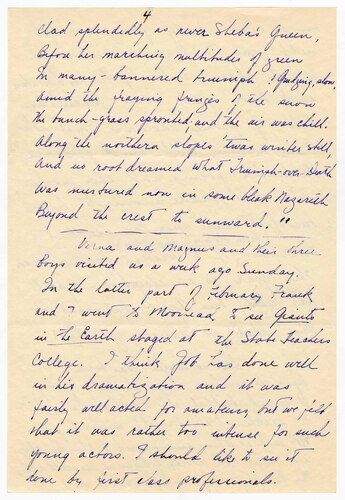 4
clad splendidly as never Sheba's Queen,
Before her marching multitudes of green
In many-bannered triumph! Grudging, slow,
Amid the fraying fringes of the snow
The bunch-grass sprouted; and the air was chill.
Along the northern slopes 'twas winter still,
And no root dreamed what Triumph-over-Death
Was nurtured now in some bleak Nazareth
Beyond the crest to sunward."
Verna and Magnus and their three
boys visited us a week ago Sunday.
In the latter part of February Frank
and I went to Moorhead to see Giants
in the Earth staged at the State Teachers
College. I think Job has done well
in his dramatization and it was
fairly well acted for amateurs, but we felt
that it was rather too intense for such
young actors. I should like to see it
done by first class professionals.